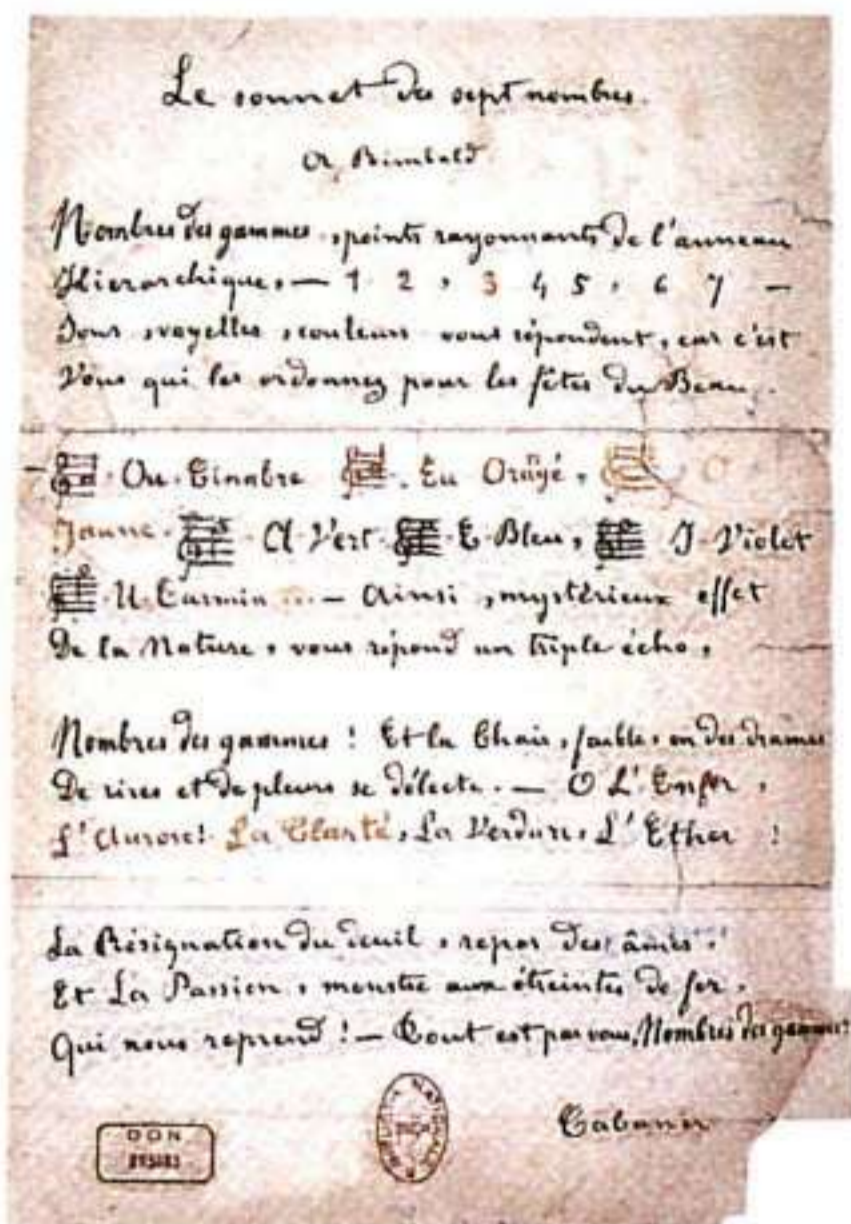 Le sonnet des sept nombres.
A Rimbald
Nombres des gammes, points rayonnants de l'anneau
Hierarchique, — 1 2, 3 4 5, 6 7 —
Sons, voyelles, couleurs vous répondent, car c'est
Vous qui les ordonnez pour les fêtes du Beau.
Ou Cinabre Eu Orangé, O
Jaune A Vert E Bleu, I Violet
U Carmin ... — Ainsi, mystérieux effet
De la Nature, vous répond un triple écho,
Nombres des gammes ! Et la Chair, faible, en des drames
De rires et de pleurs se délecte. — O L'Enfer,
L'Aurore! La Clarté, La Verdure, L'Ether !
La Résignation du deuil, repos des âmes,
Et La Passion, monstre aux étreintes de fer,
Qui nous reprend ! — Tout est par vous, Nombres des gammes!
Cabaner
DON